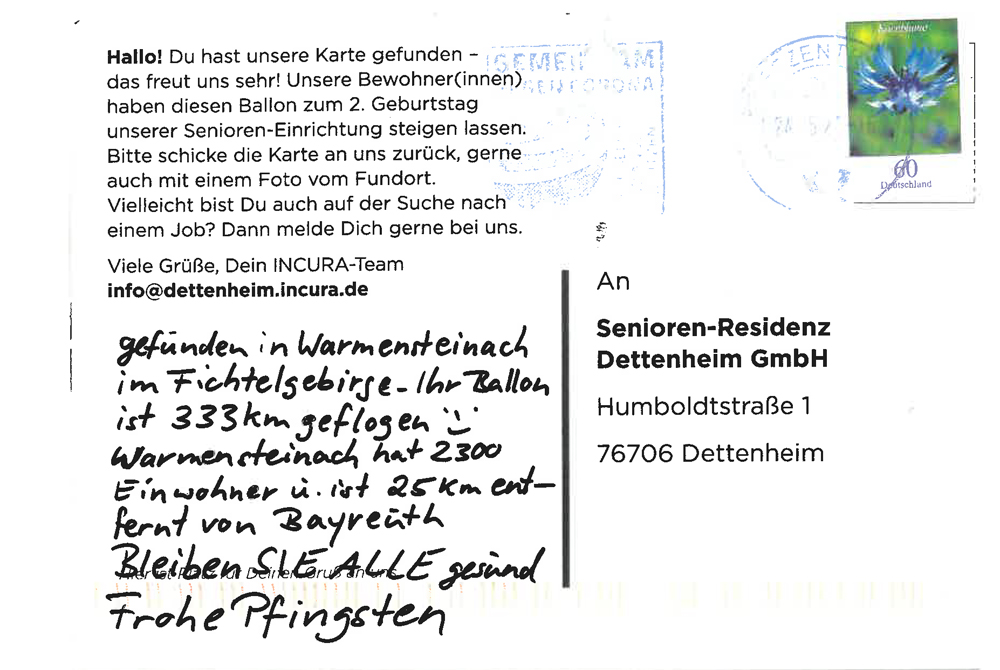 Hallo! Du hast unsere Karte gefunden –
das freut uns sehr! Unsere Bewohner(innen)
haben diesen Ballon zum 2. Geburtstag
unserer Senioren-Einrichtung steigen lassen.
Bitte schicke die Karte an uns zurück, gerne
auch mit einem Foto vom Fundort.
Vielleicht bist Du auch auf der Suche nach
einem Job? Dann melde Dich gerne bei uns.
Viele Grüße, Dein INCURA-Team
info@dettenheim.incura.de
gefunden in Warmensteinach
im Fichtelgebirge - Ihr Ballon
ist 333 km geflogen
Warmensteinach hat 2300
Einwohner u. ist 25 km ent-
fernt von Bayreuth
Bleiben SIE ALLE gesund
Hier ist Platz für Deinen Gruß an uns
Frohe Pfingsten
GEMEINSAM
GEGEN CORONA
ZENT
Kornblume
60
Deutschland
An
Senioren-Residenz
Dettenheim GmbH
Humboldtstraße 1
76706 Dettenheim